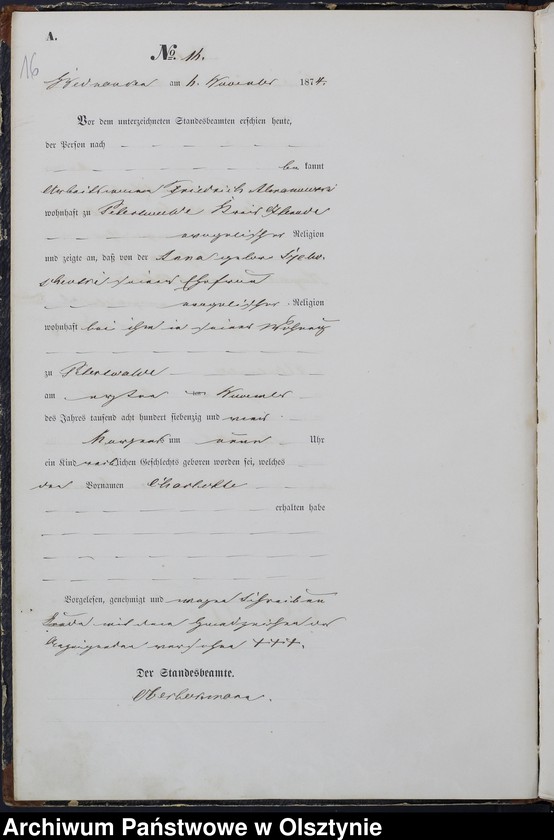 A.
16
No. 16.
am 4. November 1874.
Vor dem unterzeichneten Standesbeamten erschien heute,
der Person nach
bekannt
Friedrich
wohnhaft zu Peterswalde Kreis
evangelischer Religion
und zeigte an, daß von der Anna geborne
seiner Ehefrau
evangelischer Religion
wohnhaft bei ihm in seiner Wohnung
zu Peterswalde
am ersten November
des Jahres tausend acht hundert siebenzig und vier
Morgens um neun Uhr
ein Kind weiblichen Geschlechts geboren worden sei, welches
den Vornamen Charlotte
erhalten habe
Vorgelesen, genehmigt und wegen Schreibun
kunde mit dem Handzeichen des
Anzeigenden versehen +++.
Der Standesbeamte.
Archiwum Państwowe w Olsztynie